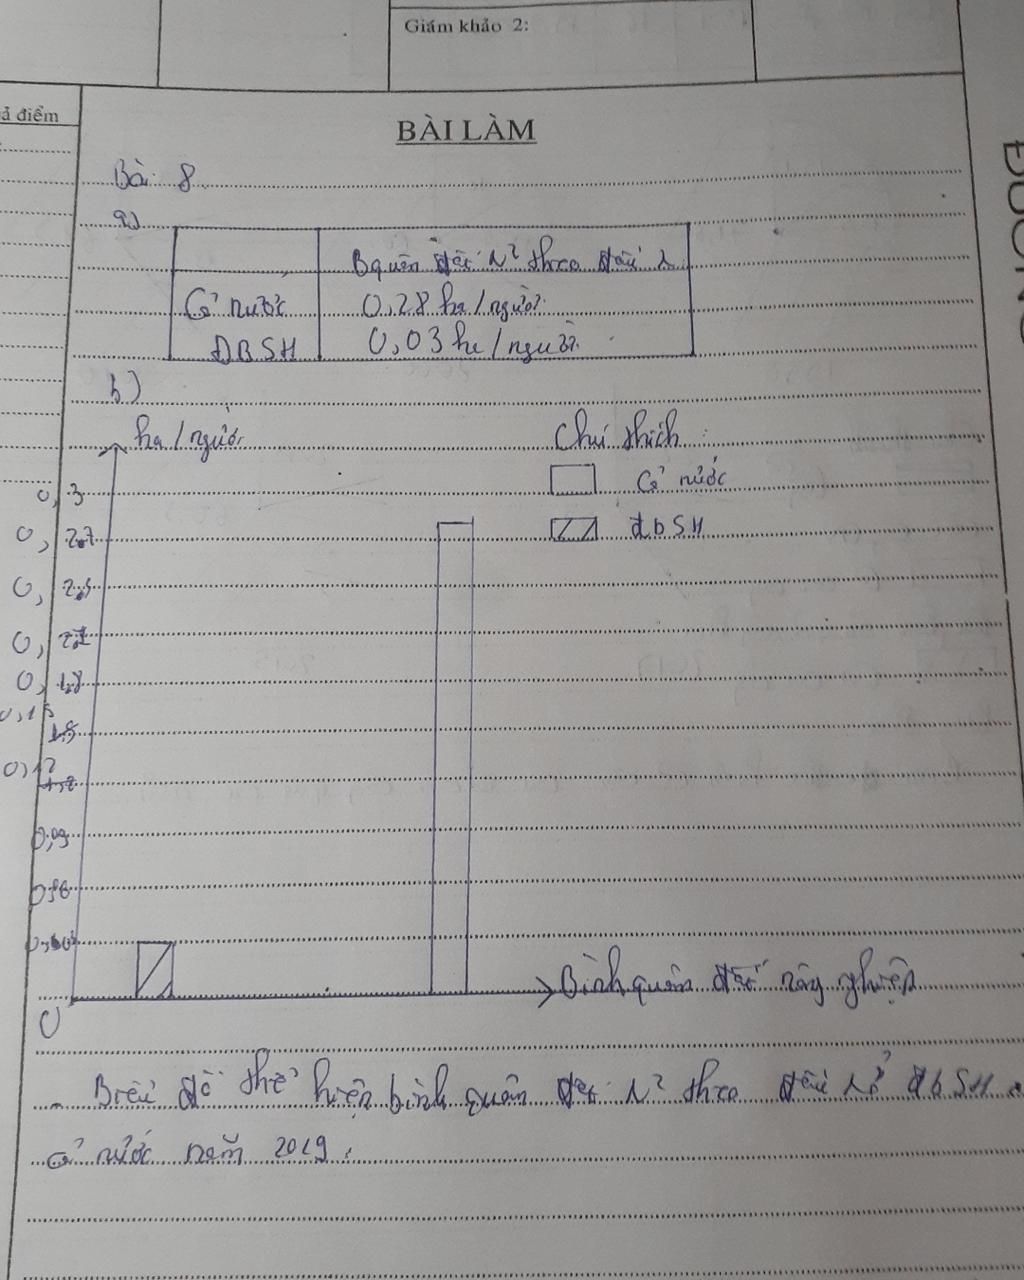 Giám khảo 2:
ả điểm
BÀI LÀM
Bài 8
a)
Bquân đất N² theo đầu
Cả nước 0,28 ha/người
ĐBSH 0,03 ha/người
b)
ha/người
Chú thích:
Cả nước
đbSH
0,3
0,27
0,15
0,12
0,09
0
Bình quân đất nông nghiệp
- Biểu đồ thể hiện bình quân đất N² theo đầu đbSH
cả nước năm 2019.